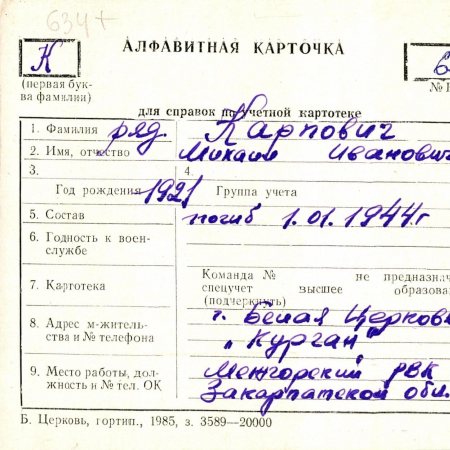 634+
АЛФАВИТНАЯ КАРТОЧКА
К
6
(первая бук-
ва фамилии)
№
для справок по учетной картотеке
1. Фамилия ряд. Карпович
2. Имя, отчество Михаил Иванович
3. Год рождения 1921
4. Группа учета
5. Состав погиб 1.01.1944г
6. Годность к воен-
службе
7. Картотека
Команда № не предназнач
спецучет высшее образова
(подчеркнуть)
8. Адрес м-житель-
ства и № телефона
г. Белая Церковь
„Курган"
9. Место работы, дол-
жность и № тел. ОК
Межгорский РВК
Закарпатской обл.
Б. Церковь, гортип., 1985, з. 3589—20000